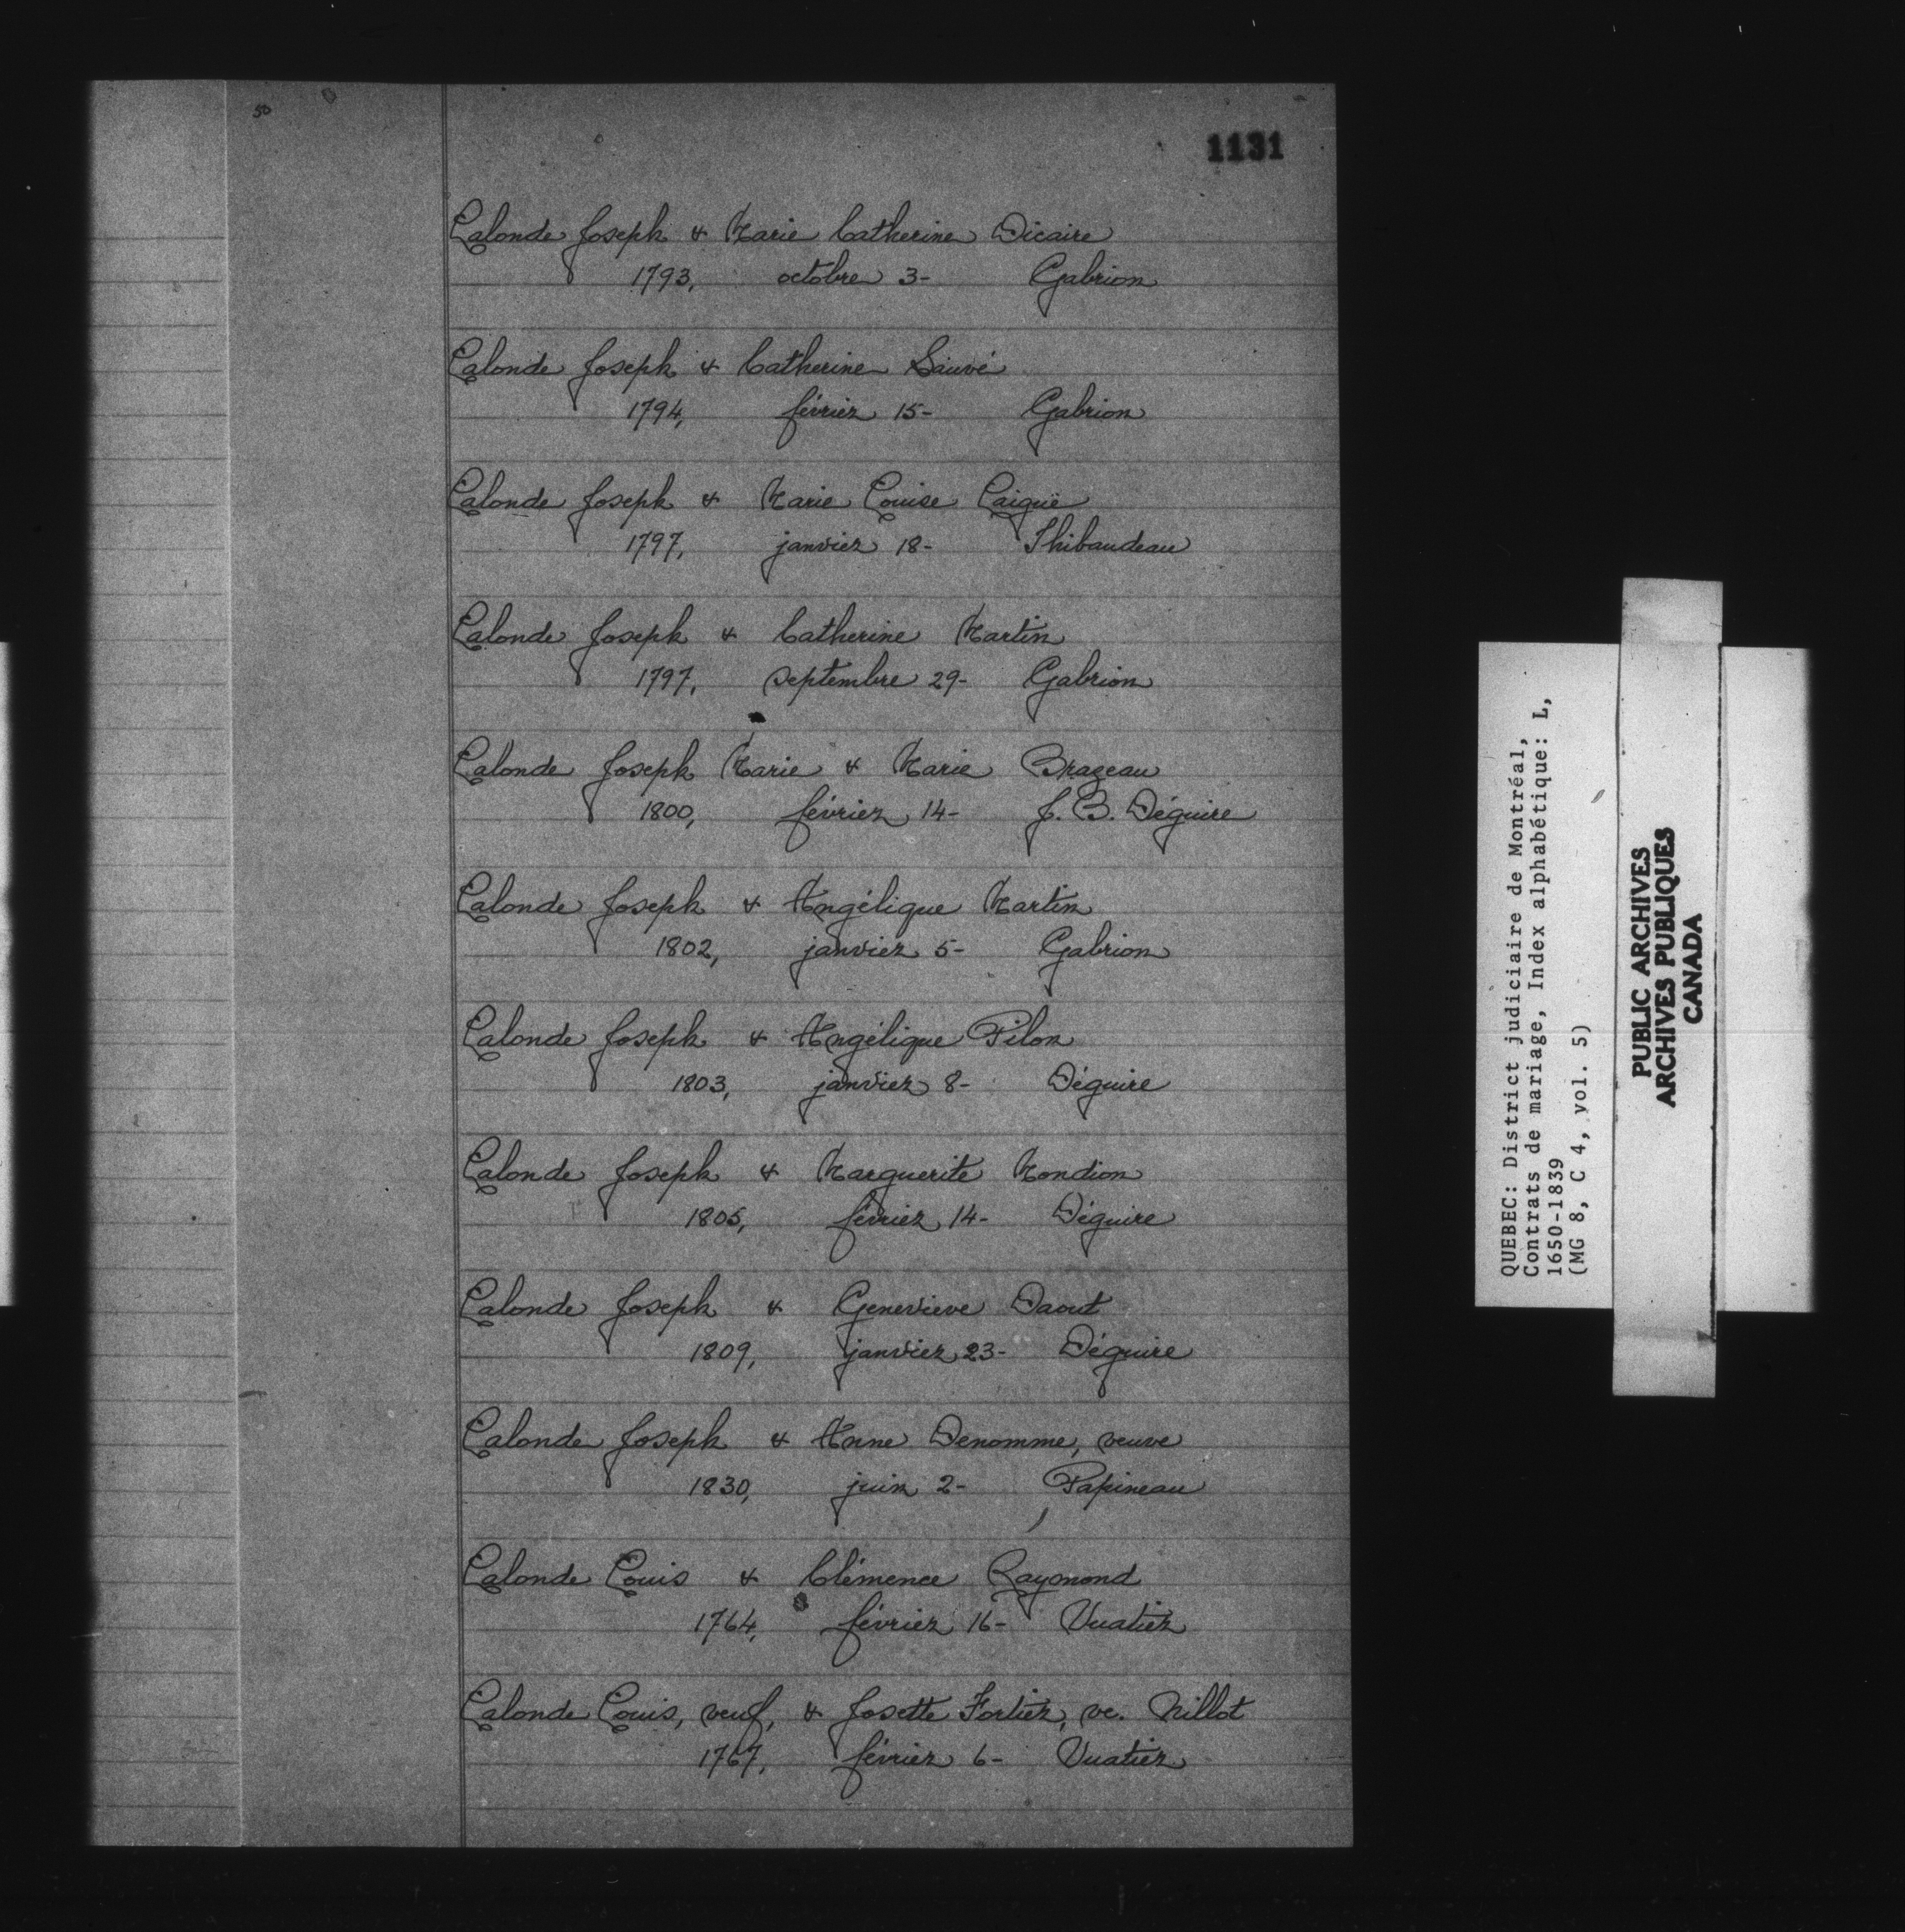 50
1131
Lalonde Joseph & Marie Catherine Dicaire
1793, octobre 3- Gabrion
Lalonde Joseph & Catherine Sauvé
1794, février 15- Gabrion
Lalonde Joseph & Marie Louise Laiguë
1797, janvier 18- Thibaudeau
Lalonde Joseph & Catherine Martin
1797, septembre 29- Gabrion
Lalonde Joseph Marie & Marie Brazeau
1800, février 14- J. B. Déguire
Lalonde Joseph & Angélique Martin
1802, janvier 5- Gabrion
Lalonde Joseph & Angélique Pilon
1803, janvier 8- Déguire
Lalonde Joseph & Marguerite Mondion
1805, février 14- Déguire
Lalonde Joseph & Genevieve Daout
1809, janvier 23- Déguire
Lalonde Joseph & Anne Denomme, veuve
1830, juin 2- Papineau
Lalonde Louis & Clémence Raymond
1764, février 16- Vuatier
Lalonde Louis, veuf, & Josette Fortier, ve. Millot
1767, février 6- Vuatier
QUEBEC: District judiciaire de Montréal,
Contrats de mariage, Index alphabétique: L,
1650-1839
(MG 8, C 4, vol. 5)
PUBLIC ARCHIVES
ARCHIVES PUBLIQUES
CANADA